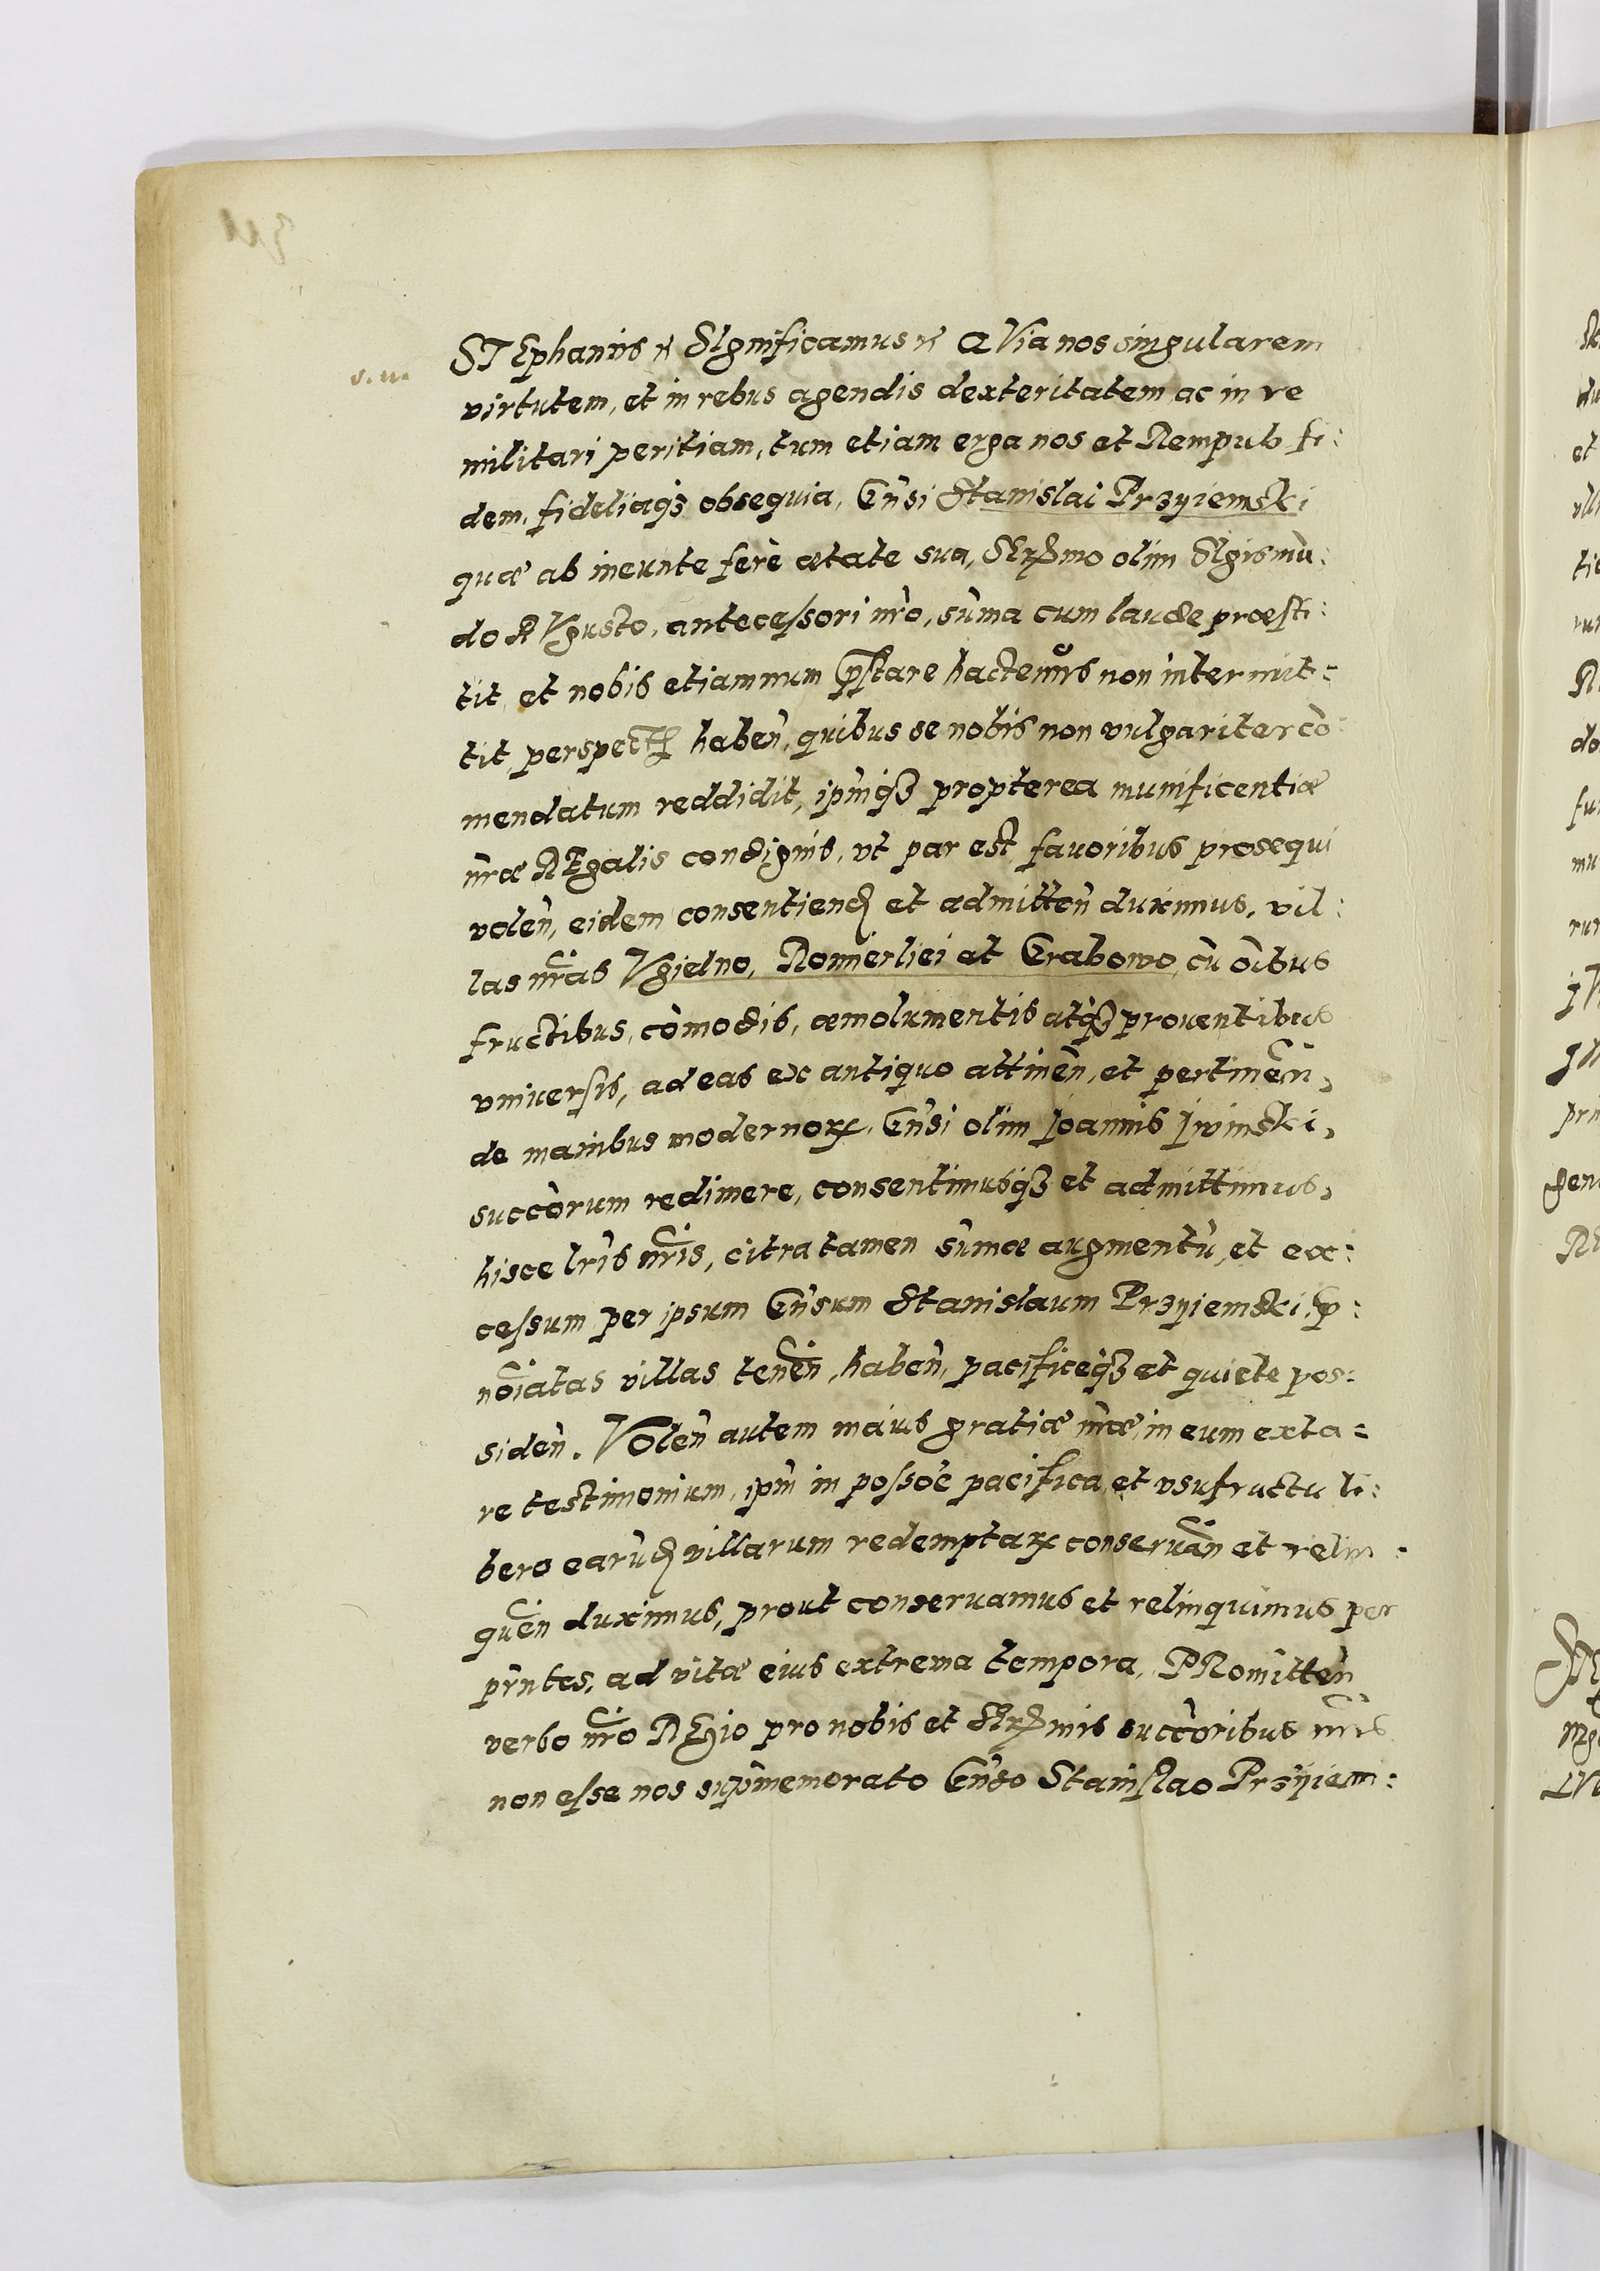 STEphanus etc SIgnificamus etc QVia nos singularem
v. u.
virtutem, et in rebus agendis dexteritatem ac in re
militari peritiam, tum etiam erga nos et Rempub fi:
dem, fideliaq₃ obsequia, Gn̄si Stanislai Przyiemski
quæ ab ineunte ferè ætate sua, SErmo olim SIgismù:
do AVgusto, antecessori nr̄o, sūma cum laude præsti:
tit, et nobis etiamnum p̄stare hactenus non intermit=
tit, perspect haben̄, quibus se nobis non vulgariter cō:
mendatum reddidit, ipm̄q₃ propterea munificentiæ
nr̄æ REgalis condignis, vt par est, favoribus prosequi
volen̄, eidem consentiend et admitten̄ duximus, vil:
las nr̄as Vgielno, Romierliei et Grabowo, cū oībus
fructibus, cōmodis, æmolumentis atq₃ prouentibus
vniuersis, ad eas ex antiquo attinen̄, et pertinen̄,
de manibus modernor, Gn̄si olim Joannis Jwinski,
succōrum redimere, consentimusq₃ et admittimus,
hisce lr̄is nr̄is, citra tamen sūmæ augmentū, et ex:
cessum per ipsum Gn̄sum Stanislaum Przyiemski, p̄:
noīatas villas tenen̄, haben̄, pacificeq₃ et quiete pos:
siden̄. VOlen̄ autem maius gratiæ nr̄æ, in eum exta=
re testimonium, ipm̄ in possōe pacifica et vsufructu li:
bero earūd villarum redemptar conseruan̄ et relin:
quen̄ duximus, prout conseruamus et relinquimus per
pn̄ntes, ad vitæ eius extrema tempora, PRomitten̄
verbo nr̄o REgio pro nobis et SErmis succōribus nr̄is
non esse nos supm̄emorato Gn̄so Stanislao Przyiem: